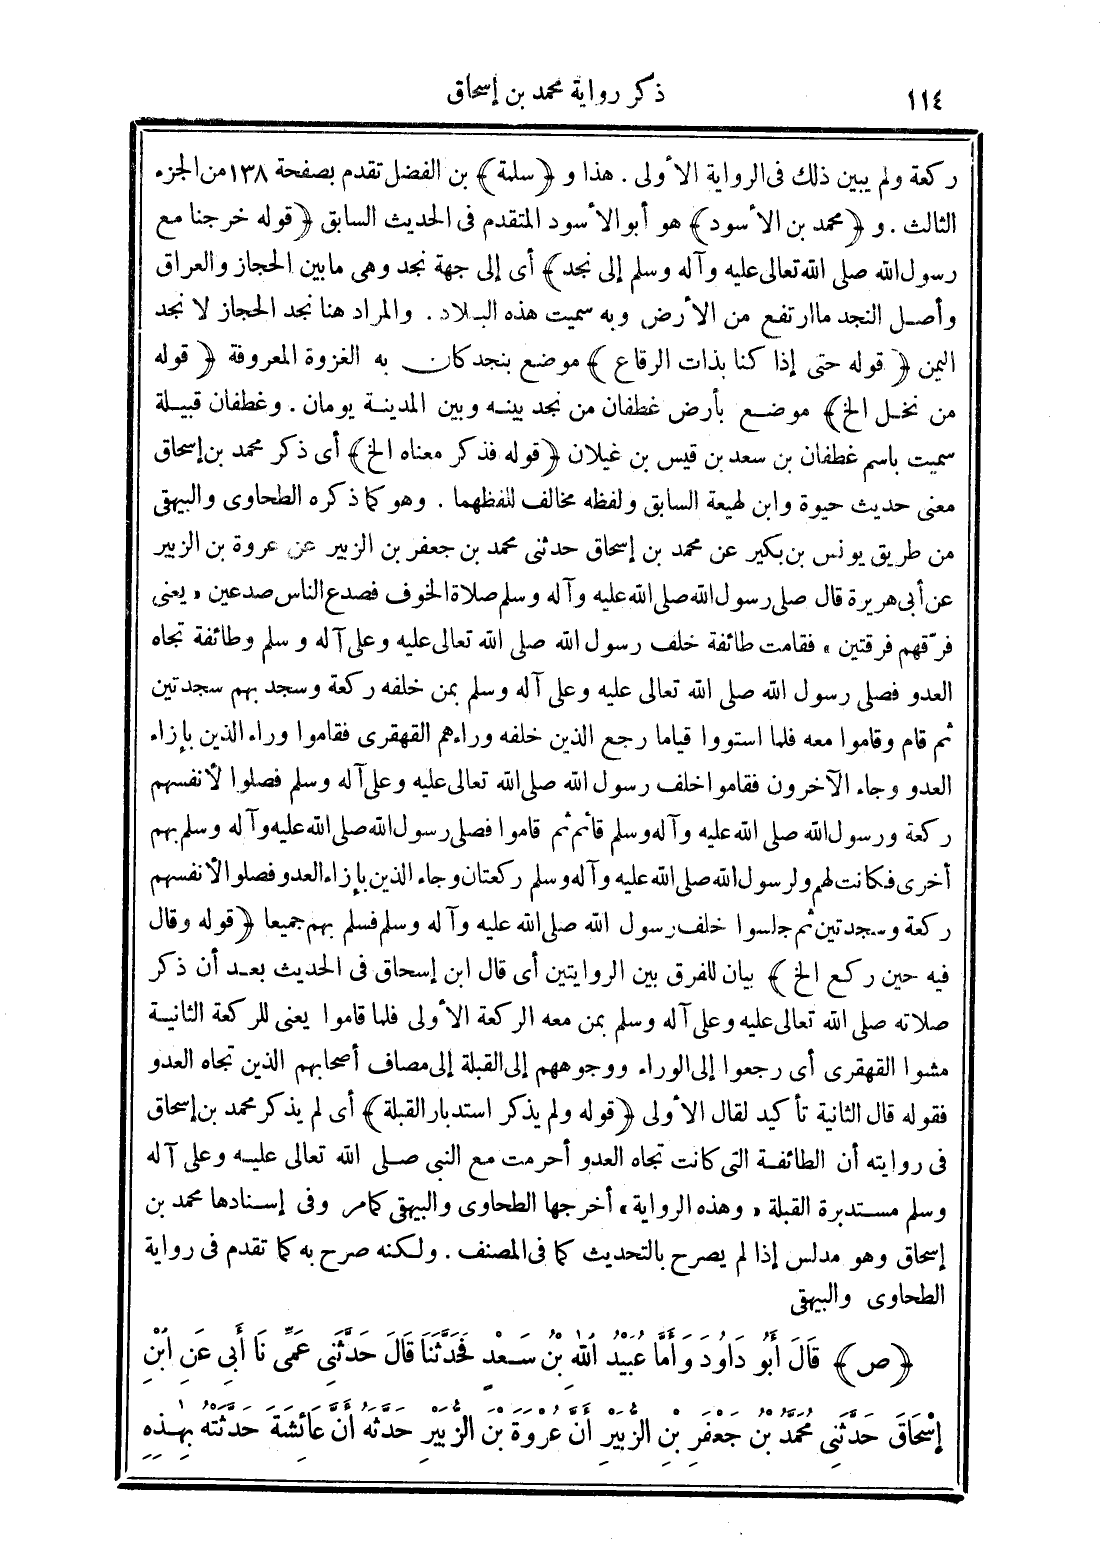 ١١٤ ذكر رواية محمد بن إسحاق
ركعة ولم يبين ذلك فى الرواية الأولى . هذا و ﴿سلمة﴾ بن الفضل تقدم بصفحة ١٣٨ من الجزء
الثالث . و ﴿محمد بن الأسود﴾ هو أبو الأسود المتقدم فى الحديث السابق ﴿قوله خرجنا مع
رسول الله صلى الله تعالى عليه وآله وسلم إلى نجد﴾ أى إلى جهة نجد وهى مابين الحجاز والعراق
وأصل النجد ماارتفع من الأرض وبه سميت هذه البلاد . والمراد هنا نجد الحجاز لا نجد
اليمن ﴿ قوله حتى إذا كنا بذات الرقاع ﴾ موضع بنجد كان به الغزوة المعروفة ﴿ قوله
من نخل الخ﴾ موضع بأرض غطفان من نجد بينه وبين المدينة يومان . وغطفان قبيلة
سميت باسم غطفان بن سعد بن قيس بن غيلان ﴿قوله فذكر معناه الخ﴾ أى ذكر محمد بن إسحاق
معنى حديث حيوة وابن لهيعة السابق ولفظه مخالف للفظهما . وهو كما ذكره الطحاوى والبيهقى
من طريق يونس بن بكير عن محمد بن إسحاق حدثنى محمد بن جعفر بن الزبير عن عروة بن الزبير
عن أبى هريرة قال صلى رسول الله صلى الله عليه وآله وسلم صلاة الخوف فصدع الناس صدعين «يعنى
فرّقهم فرقتين» فقامت طائفة خلف رسول الله صلى الله تعالى عليه وعلى آله وسلم وطائفة تجاه
العدو فصلى رسول الله صلى الله تعالى عليه وعلى آله وسلم بمن خلفه ركعة وسجد بهم سجدتين
ثم قام وقاموا معه فلما استووا قياما رجع الذين خلفه وراءهم القهقرى فقاموا وراء الذين بإزاء
العدو وجاء الآخرون فقاموا خلف رسول الله صلى الله تعالى عليه وعلى آله وسلم فصلوا لأنفسهم
ركعة ورسول الله صلى الله عليه وآله وسلم قائم ثم قاموا فصلى رسول الله صلى الله عليه وآله وسلم بهم
أخرى فكانت لهم ولرسول الله صلى الله عليه وآله وسلم ركعتان وجاء الذين بإزاء العدو فصلوا لأنفسهم
ركعة وسجدتين ثم جلسوا خلف رسول الله صلى الله عليه وآله وسلم فسلم بهم جميعا ﴿قوله وقال
فيه حين ركع الخ ﴾ بيان للفرق بين الروايتين أى قال ابن إسحاق فى الحديث بعد أن ذكر
صلاته صلى الله تعالى عليه وعلى آله وسلم بمن معه الركعة الأولى فلما قاموا يعنى للركعة الثانية
مشوا القهقرى أى رجعوا إلى الوراء ووجوههم إلى القبلة إلى مصاف أصحابهم الذين تجاه العدو
فقوله قال الثانية تأكيد لقال الأولى ﴿قوله ولم يذكر استدبار القبلة﴾ أى لم يذكر محمد بن إسحاق
فى روايته أن الطائفة التى كانت تجاه العدو أحرمت مع النبى صلى الله تعالى عليه وعلى آله
وسلم مستدبرة القبلة «وهذه الرواية» أخرجها الطحاوى والبيهقى كمامر وفى إسنادها محمد بن
إسحاق وهو مدلس إذا لم يصرح بالتحديث كما فى المصنف . ولكنه صرح به كما تقدم فى رواية
الطحاوى والبيهقى
﴿ص﴾ قَالَ أَبُو دَاوُدَ وَأَمَّا عُبَيْدُ اللهِ بْنُ سَعْدٍ فَحَدَّثَنَا قَالَ حَدَّثَنِى عَمِّى نَا أَبِى عَنِ ابْنِ
إِسْحَاقَ حَدَّثَنِى مُحَمَّدُ بْنُ جَعْفَرِ بْنِ الزُّبَيْرِ أَنَّ عُرْوَةَ بْنَ الزُّبَيْرِ حَدَّثَهُ أَنَّ عَائِشَةَ حَدَّثَتْهُ بِهٰذِهِ